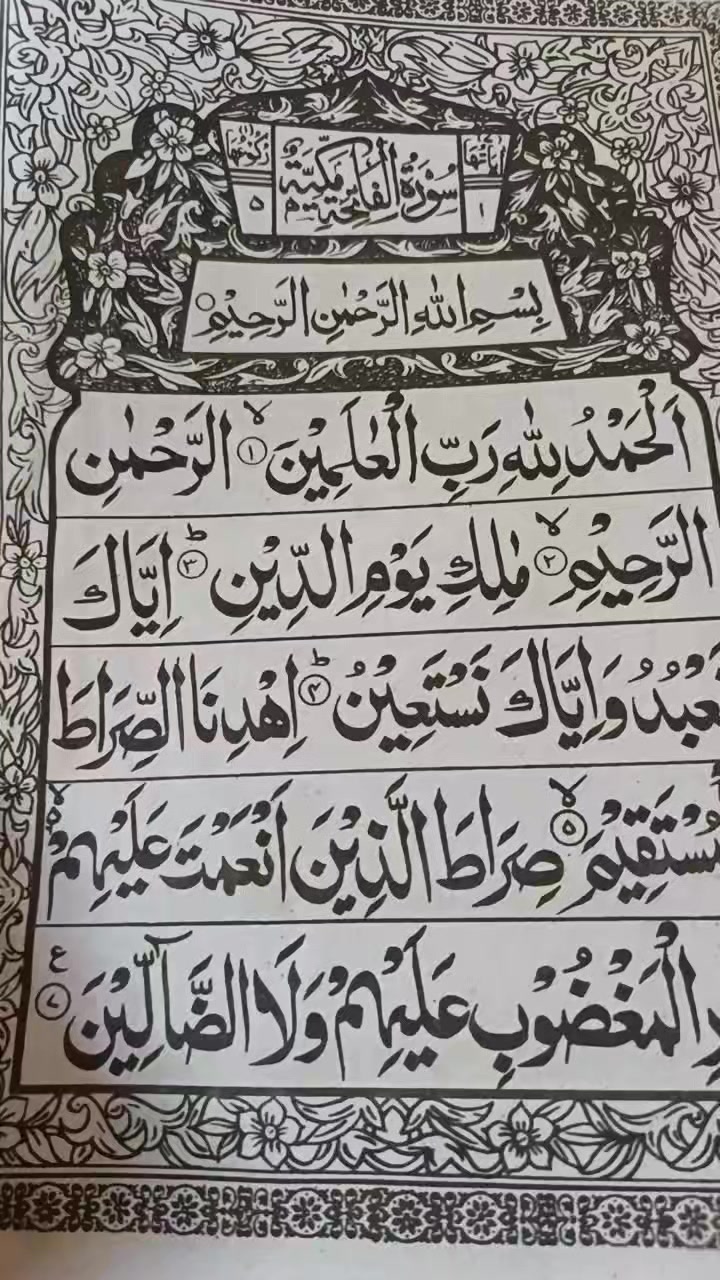 اٰیَاتُهَا ١
سُوْرَةُ الْفَاتِحَةِ مَكِّیَّةٌ
رُكُوْعُهَا ٥
بِسْمِ اللّٰهِ الرَّحْمٰنِ الرَّحِیْمِ○
اَلْحَمْدُ لِلّٰهِ رَبِّ الْعٰلَمِیْنَ ۙ ١ الرَّحْمٰنِ
الرَّحِیْمِ ۙ ٢ مٰلِكِ یَوْمِ الدِّیْنِ ؕ ٣ اِیَّاكَ
عْبُدُ وَ اِیَّاكَ نَسْتَعِیْنُ ؕ ۴ اِهْدِنَا الصِّرَاطَ
مُسْتَقِیْمَ ۙ ۵ صِرَاطَ الَّذِیْنَ اَنْعَمْتَ عَلَیْهِمْ ۙ۵
رِ الْمَغْضُوْبِ عَلَیْهِمْ وَلَا الضَّآلِّیْنَ ٧ ع